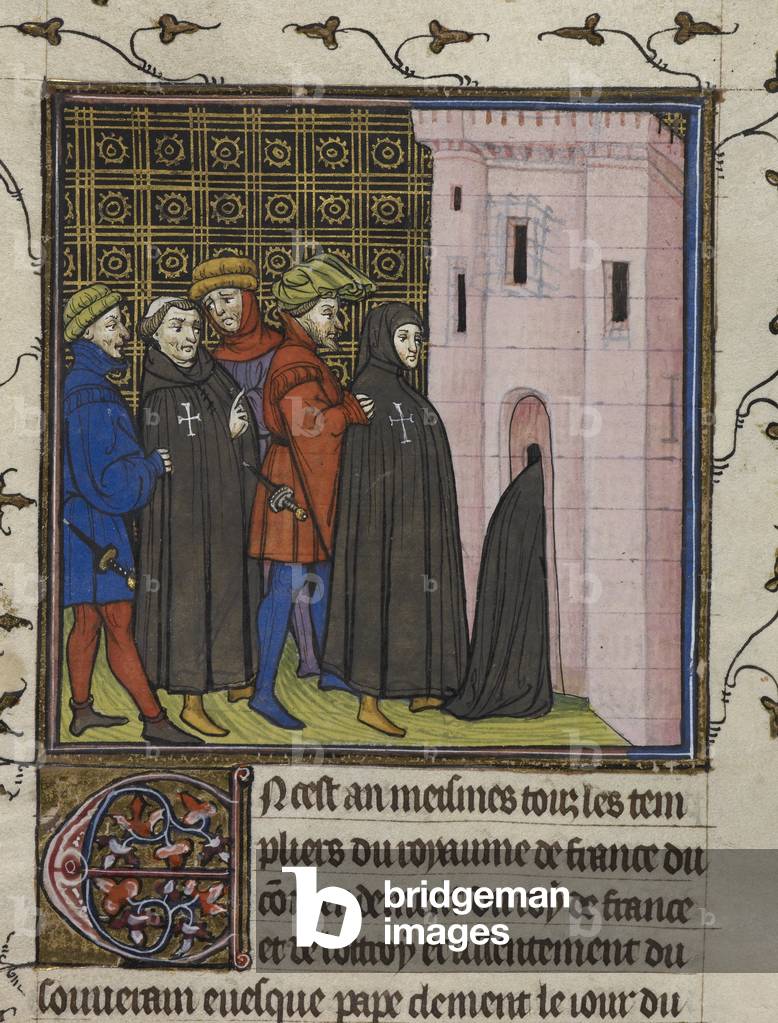 En cest an meismes touz les tem
pliers du royaume de france du
de france
et de et du
souuerain euesque pape clement le iour du
b bridgeman images